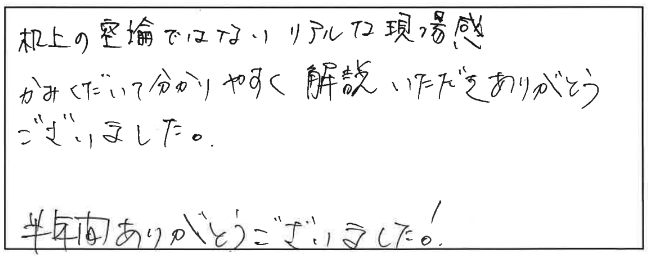 机上の空論ではないリアルな現場感
かみくだいて分かりやすく解説いただきありがとう
ございました。
半年間ありがとうございました!